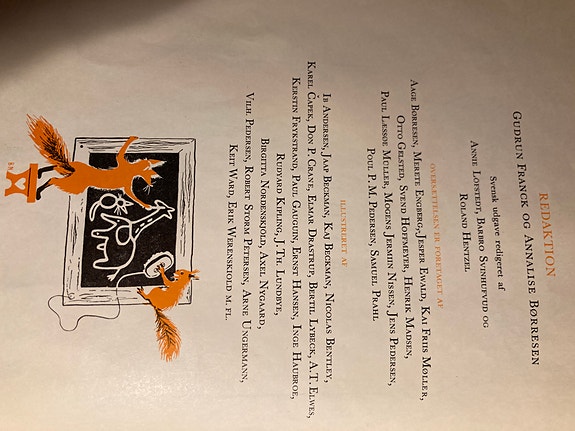 REDAKTION
GUDRUN FRANCK OG ANNALISE BØRRESEN
Svensk udgave redigeret af
ANNIE LÖFSTEDT, BARBRO SVINHUFVUD OG
ROLAND HENTZEL
OVERSÆTTELSEN ER FORETAGET AF
AAGE BØRRESEN, MERETE ENGBERG, JESPER EWALD, KAI FRIIS MØLLER,
OTTO GELSTED, SVEND HOFFMEYER, HENRIK MADSEN,
PAUL LÆSSØE MÜLLER, MOGENS JERMIIN NISSEN, JENS PEDERSEN,
POUL P. M. PEDERSEN, SAMUEL PRAHL
ILLUSTRERET AF
IB ANDERSEN, JAAP BECKMAN, KAJ BECKMAN, NICOLAS BENTLEY,
KAREL ČAPEK, DON P. CRANE, ELMAR DRASTRUP, BERTIL LYBECK, A. T. ELWES,
KERSTIN FRYKSTRAND, PAUL GAUGUIN, ERNST HANSEN, INGE HAUBROE,
RUDYARD KIPLING, J. TH. LUNDBYE,
BIRGITTA NORDENSKJÖLD, AXEL NYGAARD,
VILH. PEDERSEN, ROBERT STORM PETERSEN, ARNE UNGERMANN,
KEIT WARD, ERIK WERENSKIOLD M. FL.